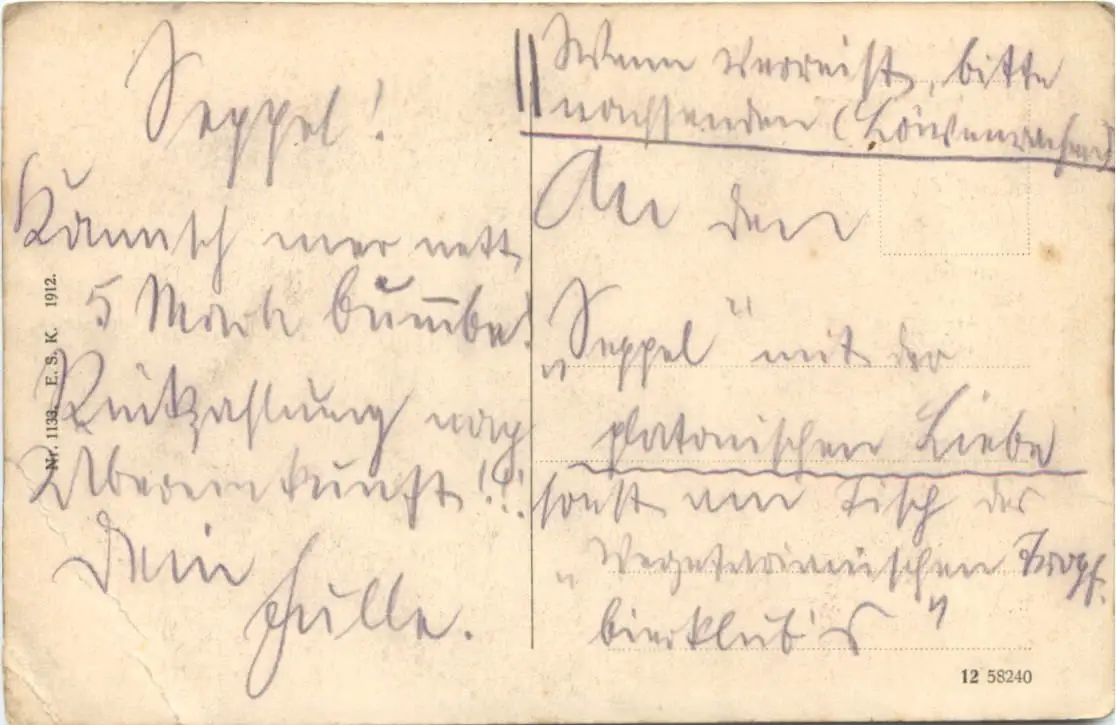 Seppel!
Kannsch mer nett
5 Mark bumbe!
Rückzahlung nach
Übereinkunft!!!
Dein
Julle.
Nr. 1133. E. S. K. 1912.
Wenn verreist, bitte
nachsenden (Löwenrachen)
An den
„Seppel" mit der
platonischen Liebe
sonst am Tisch des
„Vegetarianischen Tropf-
bierklub's"
12 58240